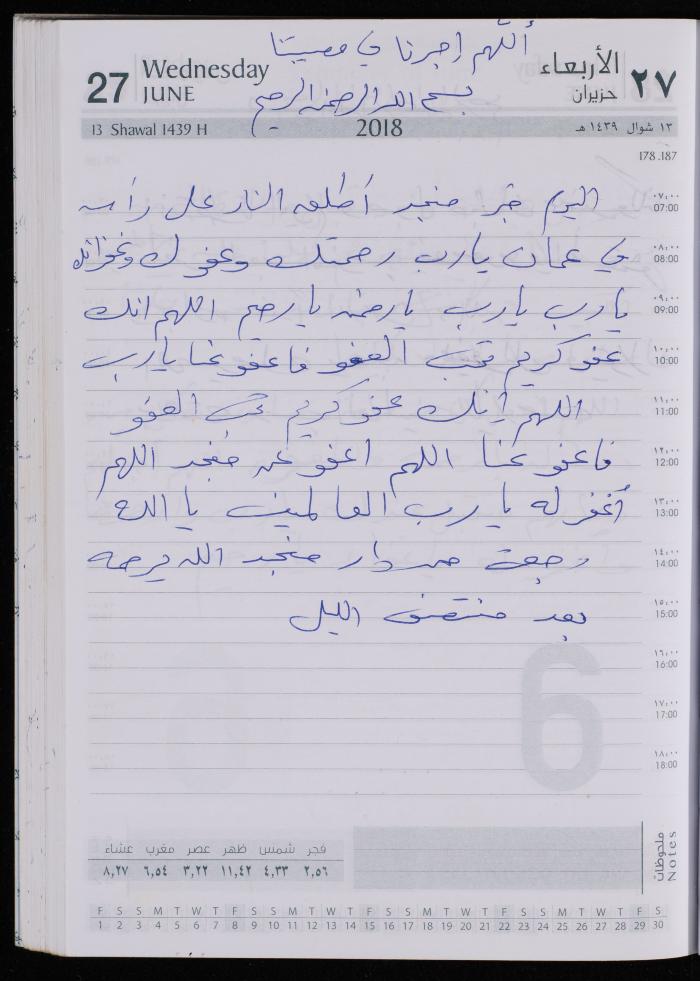 أللهم إجبرنا في مصيبتنا
27 Wednesday JUNE
الأربعاء ٢٧ حزيران
بسم الله الرحمن الرحيم
13 Shawal 1439 H 2018 ١٣ شوال ١٤٣٩ هـ
178.187
٠٧:٠٠ 07:00
اليوم خبر منجد أطلق النار على رأسه
٠٨:٠٠ 08:00
في عمان يارب رحمتك وعفوك وغفرانك
٠٩:٠٠ 09:00
يارب يارب يارحمن يارحيم اللهم انك
١٠:٠٠ 10:00
عفو كريم تحب العفو فاعفو عنا يارب
١١:٠٠ 11:00
اللهم إنك عفو كريم تحب العفو
١٢:٠٠ 12:00
فاعفو عنا اللهم اعفو عن منجد اللهم
١٣:٠٠ 13:00
أغفر له يا رب العالمين يا الله
١٤:٠٠ 14:00
رجعت من دار منجد الله يرحمه
١٥:٠٠ 15:00
بعد منتصف الليل
١٦:٠٠ 16:00
١٧:٠٠ 17:00
١٨:٠٠ 18:00
6
ملحوظات Notes
فجر شمس ظهر عصر مغرب عشاء
٢,٥٦ ٤,٣٣ ١١,٤٢ ٣,٢٢ ٦,٥٤ ٨,٢٧
F S S M T W T F S S M T W T F S S M T W T F S S M T W T F S
1 2 3 4 5 6 7 8 9 10 11 12 13 14 15 16 17 18 19 20 21 22 23 24 25 26 27 28 29 30